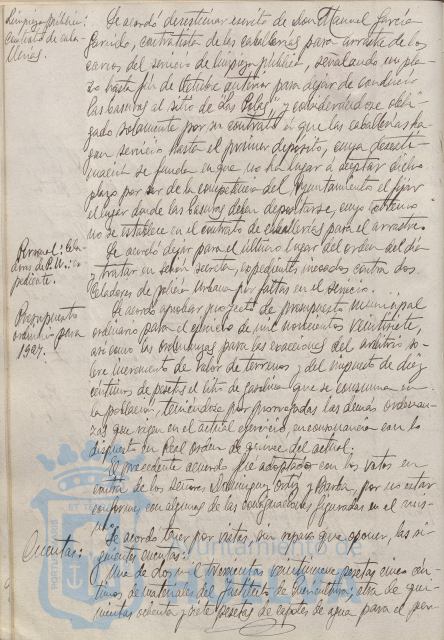 Limpieza pública:
Contrato de caba-
llerías.
Se acordó desestimar escrito de Don Manuel García
Garrido, contratista de las caballerías para arrastre de los
carros del servicio de limpieza pública, señalando un pla-
zo hasta fin de Octubre anterior para dejar de conducir
las basuras al sitio de "Las Colas", y considerándose obli-
gado solamente por su contrato a que las caballerías ha-
gan servicio hasta el primer depósito, cuya desesti-
mación se funda en que no ha lugar a aceptar dicho
plazo por ser de la competencia del Ayuntamiento el fijar
el lugar donde las basuras deban depositarse, cuyo extremo
no se establece en el contrato de caballerías para el arrastre.
Personal: Cela-
dores de P. U.: ex-
pediente.
Se acordó dejar para el último lugar del orden del día
y tratar en sesión secreta, expedientes incoados contra dos
Celadores de policía Urbana por faltas en el servicio.
Presupuesto
ordinario para
1927.
Se acordó aprobar proyecto de presupuesto municipal
ordinario para el ejercicio de mil novecientos veintisiete,
así como las ordenanzas para las exacciones del arbitrio so-
bre incremento de valor de terrenos y del impuesto de diez
céntimos de peseta el litro de gasolina que se consuma en
la población, teniéndose por prorrogadas las demás ordenan-
zas que rigen en el actual ejercicio en consonancia con lo
dispuesto en Real Orden de quince del actual.
El precedente acuerdo fué adoptado con los votos en
contra de los señores Domínguez Ortiz y Barba, por no estar
conforme con algunas de las consignaciones figuradas en el mis-
mo.
Cuentas:
Se acordó tener por vistas, sin reparo que oponer, las si-
guientes cuentas:
Una de dos mil trescientas veintinueve pesetas cinco cén-
timos de materiales del Instituto de Puericultura; otra de qui-
nientas ochenta y siete pesetas de cajas de agua para el per-
Ayuntamiento de